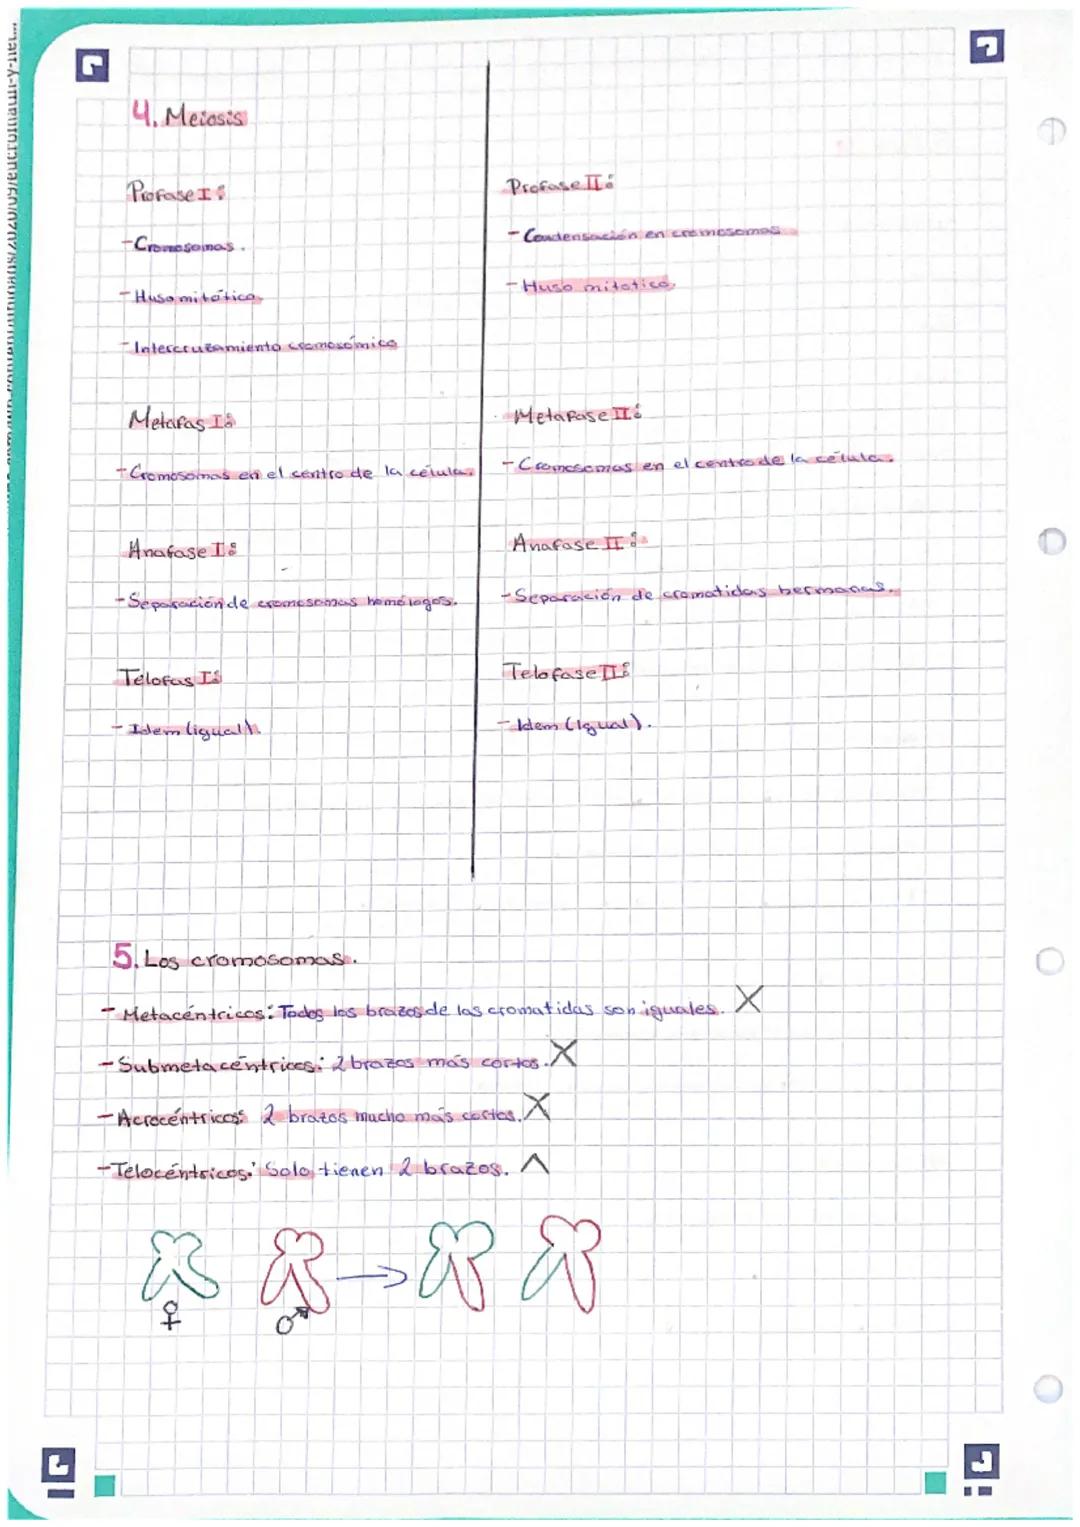 4. Meiosis
Profase I:
- Cromosomas.
- Huso mitótico.
- Intercruzamiento cromosómico
Metafas I:
- Cromosomas en el centro de la célula.
Anafase I:
- Separación de cromosomas homólogos.
Telofas I:
- Idem (igual).
Profase II:
- Condensación en cromosomas
- Huso mitotico.
Metafase II:
- Cromosomas en el centro de la célula.
Anafase II:
- Separación de cromatidas hermanas.
Telofase II:
- Idem (Igual).
5. Los cromosomas.
- Metacéntricos: Todos los brazos de las cromatidas son iguales. X
- Submetacéntricos: 2 brazos más cortos. X
- Acrocéntricos: 2 brazos mucho más cortos. X
- Telocéntricos: Solo tienen 2 brazos. ʌ